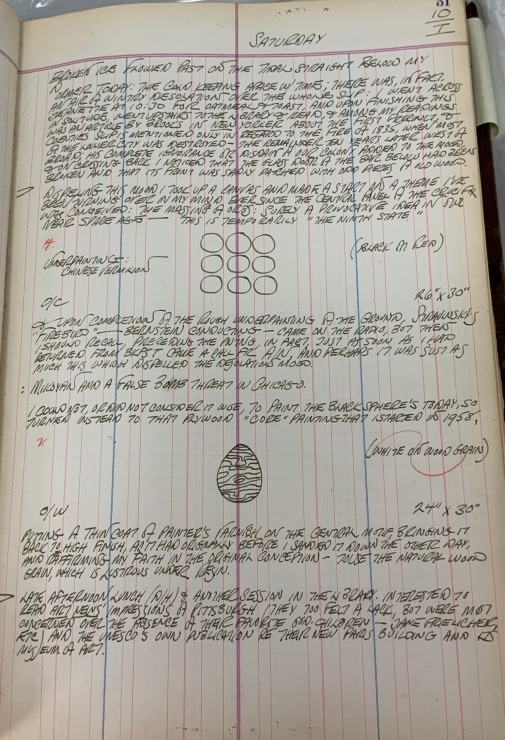 31
10
I
SATURDAY
BROKEN ICE FLOWED PAST ON THE TIDAL STRAIGHT BELOW MY
TODAY: THE COLD KEEPING APACE W/ TIMES; THERE WAS, IN FACT,
AN AIR OF WINTRY DESOLATION OVER THE WHOLE SLIP. I WENT ACROSS
AT 10:30 FOR OATMEAL & TOAST, AND UPON FINISHING THIS
WENT UPSTAIRS TO THE LIBRARY & READ, & AMONG MY READINGS
WAS AN ARTICLE BY IN NEW YORKER ABOUT THE FIRST PRECINCT, &
COENTIES SLIP IS MENTIONED ONLY IN REGARD TO THE FIRE OF 1835, WHEN MOST
OF THE LOWER CITY WAS DESTROYED — THE REMAINDER TEN YEARS LATER WEST OF
BROAD, HIS COMPLETE IGNORANCE OF ADDED TO THE MOOD,
& ON CROSSING BACK I NOTICED THAT THE GLASS DOOR OF THE BAR BELOW HAD BEEN
BROKEN AND THAT ITS FRONT WAS SADLY PATCHED WITH ODD PIECES OF OLD WOOD.
DISPELING THIS MOOD I TOOK UP A CANVAS AND MADE A START ON A THEME I'VE
BEEN TURNING OVER IN MY MIND EVER SINCE THE CENTRAL PANEL OF THE CRUCIFIX
WAS CONCEIVED: THE MASSING OF ORBS: SURELY A PROVOCATIVE IDEA IN OUR
SPACE AGE — THIS IS TEMPORARILY "THE NINTH STATE"
(BLACK ON RED)
UNDERPAINTING:
CHINESE VERMILION
O/C
26" X 30"
UPON COMPLETION OF THE ROUGH UNDERPAINTING OF THE GROUND, STRAVINSKY'S
"FIREBIRD" — BERNSTEIN CONDUCTING — CAME ON THE RADIO, BUT THEN
I SHOULD RECALL, PRECEDING THE PATING, IN FACT, JUST AS SOON AS I HAD
RETURNED FROM BKFST CAME A CALL FR. A/N, AND PERHAPS IT WAS JUST AS
MUCH THIS WHICH DISPELLED THE DESOLATION MOOD.
: MIKOYAN AND A FALSE BOMB THREAT IN CHICAGO.
I COULD NOT, OR DID NOT CONSIDER IT WISE, TO PAINT THE BLACK SPHERE'S TODAY, SO
TURNED INSTEAD TO THAT PLYWOOD "CORE" PAINTING THAT I STARTED IN 1958,
(WHITE ON WOOD GRAIN)
O/W
24" X 30"
PUTTING A THIN COAT OF PAINTER'S VARNISH ON THE CENTRAL MOTIF BRINGING IT
BACK TO HIGH FINISH, AS IT HAD ORIGINALLY BEFORE I SANDED IT DOWN THE OTHER DAY,
AND REAFFIRMING MY FAITH IN THE ORIGINAL CONCEPTION — TO USE THE NATURAL WOOD
GRAIN, WHICH IS LUSTROUS UNDER RESIN.
LATE AFTERNOON LUNCH & ANOTHER SESSION IN THE LIBRARY. INTERESTED TO
READ ART NEWS' IMPRESSIONS OF PITTSBURGH (THEY TOO FELT A LACK, BUT WERE MOST
CONCERNED OVER THE ABSENCE OF THEIR FAVORITE CHILDREN — JANE FREILICHER,
ETC.) AND THE UNESCO'S OWN PUBLICATION RE THEIR NEW PARIS BUILDING AND ITS
MUSEUM OF ART.